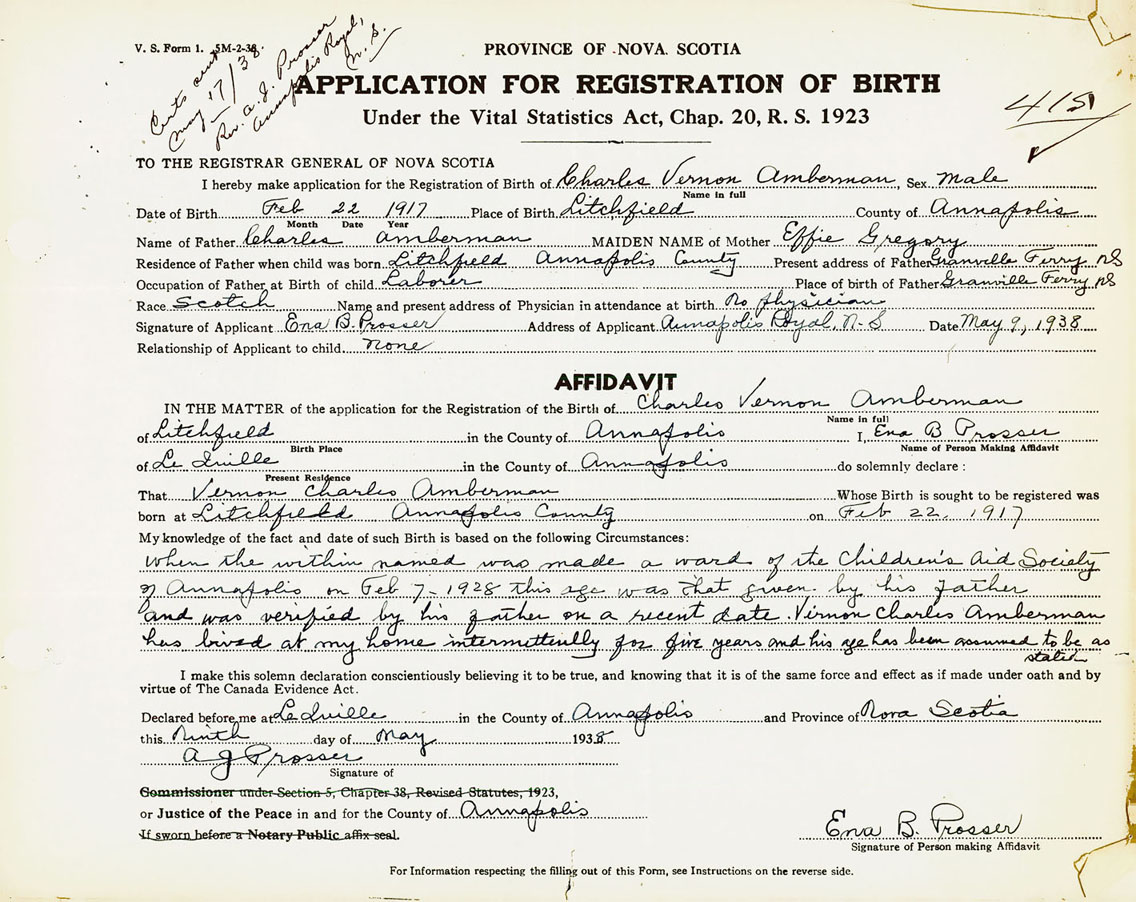 V. S. Form 1. 5M-2-38.
Certs sent
May 17/38
Rev. A. J. Prosser
Annapolis Royal,
N. S.
PROVINCE OF NOVA SCOTIA
APPLICATION FOR REGISTRATION OF BIRTH
Under the Vital Statistics Act, Chap. 20, R. S. 1923
415
TO THE REGISTRAR GENERAL OF NOVA SCOTIA
I hereby make application for the Registration of Birth of Charles Vernon Amberman, Sex Male
Name in full
Date of Birth Feb 22 1917 Place of Birth Litchfield County of Annapolis
Month Date Year
Name of Father Charles Amberman MAIDEN NAME of Mother Effie Gregory
Residence of Father when child was born Litchfield Annapolis County Present address of Father Granville Ferry, NS
Occupation of Father at Birth of child Laborer Place of birth of Father Granville Ferry, NS
Race Scotch Name and present address of Physician in attendance at birth No physician
Signature of Applicant Ena B. Prosser Address of Applicant Annapolis Royal, N-S Date May 9, 1938
Relationship of Applicant to child none
AFFIDAVIT
IN THE MATTER of the application for the Registration of the Birth of Charles Vernon Amberman
Name in full
of Litchfield in the County of Annapolis I, Ena B Prosser
Birth Place Name of Person Making Affidavit
of Le Quille in the County of Annapolis do solemnly declare :
Present Residence
That Vernon Charles Amberman Whose Birth is sought to be registered was
born at Litchfield Annapolis County on Feb 22, 1917
My knowledge of the fact and date of such Birth is based on the following Circumstances:
When the within named was made a ward of the Children's Aid Society
of Annapolis on Feb 7-1928 this age was that given by his father
and was verified by his father on a recent date. Vernon Charles Amberman
has lived at my home intermittently for five years and his age has been assumed to be as
stated
I make this solemn declaration conscientiously believing it to be true, and knowing that it is of the same force and effect as if made under oath and by
virtue of The Canada Evidence Act.
Declared before me at Le Quille in the County of Annapolis and Province of Nova Scotia
this Ninth day of May 1938
A J Prosser
Signature of
Commissioner under Section 5, Chapter 38, Revised Statutes, 1923,
or Justice of the Peace in and for the County of Annapolis
If sworn before a Notary Public affix seal.
Ena B. Prosser
Signature of Person making Affidavit
For Information respecting the filling out of this Form, see Instructions on the reverse side.